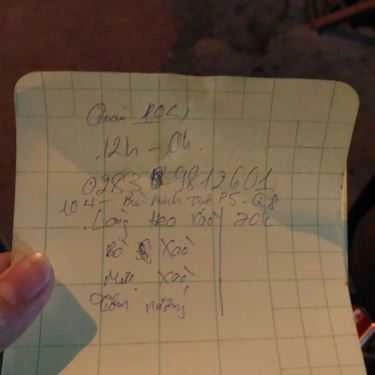 Quán
12h - 0h
0283 9812601
104 - Bùi Minh Trực P5 - Q8
Lòng heo xào 70k
Bò Xào
Mực Xào
Tôm nướng